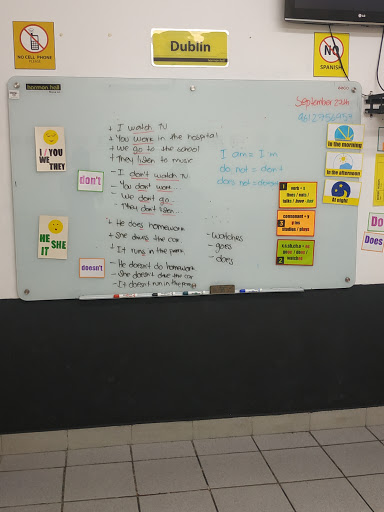 NO CELL PHONE
PLEASE
Dublin
NO
SPANISH
harmon hall
September 24th
I / YOU
WE
THEY
don't
HE
SHE
IT
doesn't
+ I watch TV
+ You work in the hospital
+ We go to the school
+ They listen to music
- I don't watch TV
- You don't work
- We don't go
- They don't listen
+ He does homework
+ She drives the car
+ It runs in the park
- He doesn't do homework
- She doesn't drive the car
- It doesn't run in the
- watches
- goes
- does
I am = I'm
do not = don't
does not = doesn't
1
verb + s
talks / love
3
consonant + y
studies / plays
2
goes / does /
watches
In the morning
In the afternoon
At night
Do
Does